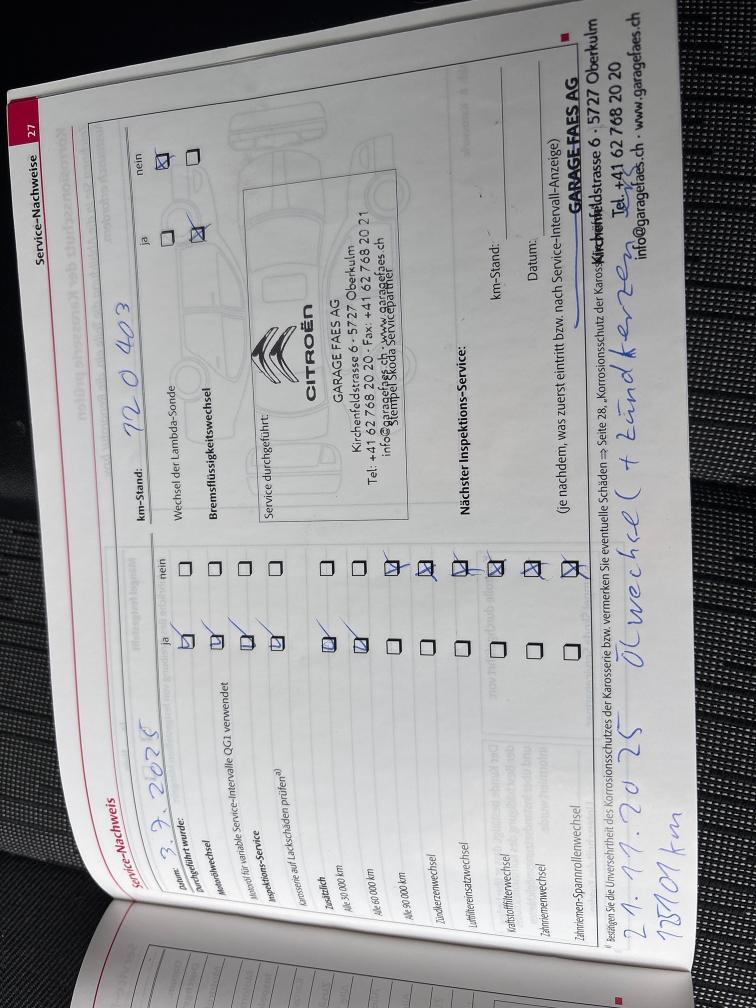 Service-Nachweise 27
Service-Nachweis
Datum: 3.7.2025
km-Stand: 120 403
Durchgeführt wurde: ja nein
Motorölwechsel
Motoröl für variable Service-Intervalle QG1 verwendet
Inspektions-Service
Karosserie auf Lackschäden prüfen a)
Zusätzlich
Alle 30 000 km
Alle 60 000 km
Alle 90 000 km
Zündkerzenwechsel
Luftfiltereinsatzwechsel
Kraftstofffilterwechsel
Zahnriemenwechsel
Zahnriemen-Spannrollenwechsel
ja nein
Wechsel der Lambda-Sonde
Bremsflüssigkeitswechsel
Service durchgeführt:
CITROËN
GARAGE FAES AG
Kirchenfeldstrasse 6 · 5727 Oberkulm
Tel: +41 62 768 20 20 · Fax: +41 62 768 20 21
info@garagefaes.ch · www.garagefaes.ch
Stempel Škoda Servicepartner
Nächster Inspektions-Service:
km-Stand:
Datum:
(je nachdem, was zuerst eintritt bzw. nach Service-Intervall-Anzeige)
a) Bestätigen Sie die Unversehrtheit des Korrosionsschutzes der Karosserie bzw. vermerken Sie eventuelle Schäden ⇒ Seite 28, „Korrosionsschutz der
GARAGE FAES AG
Kirchenfeldstrasse 6 · 5727 Oberkulm
Tel. +41 62 768 20 20
info@garagefaes.ch · www.garagefaes.ch
21.11.2025 Ölwechsel + Zündkerzen
125101 km